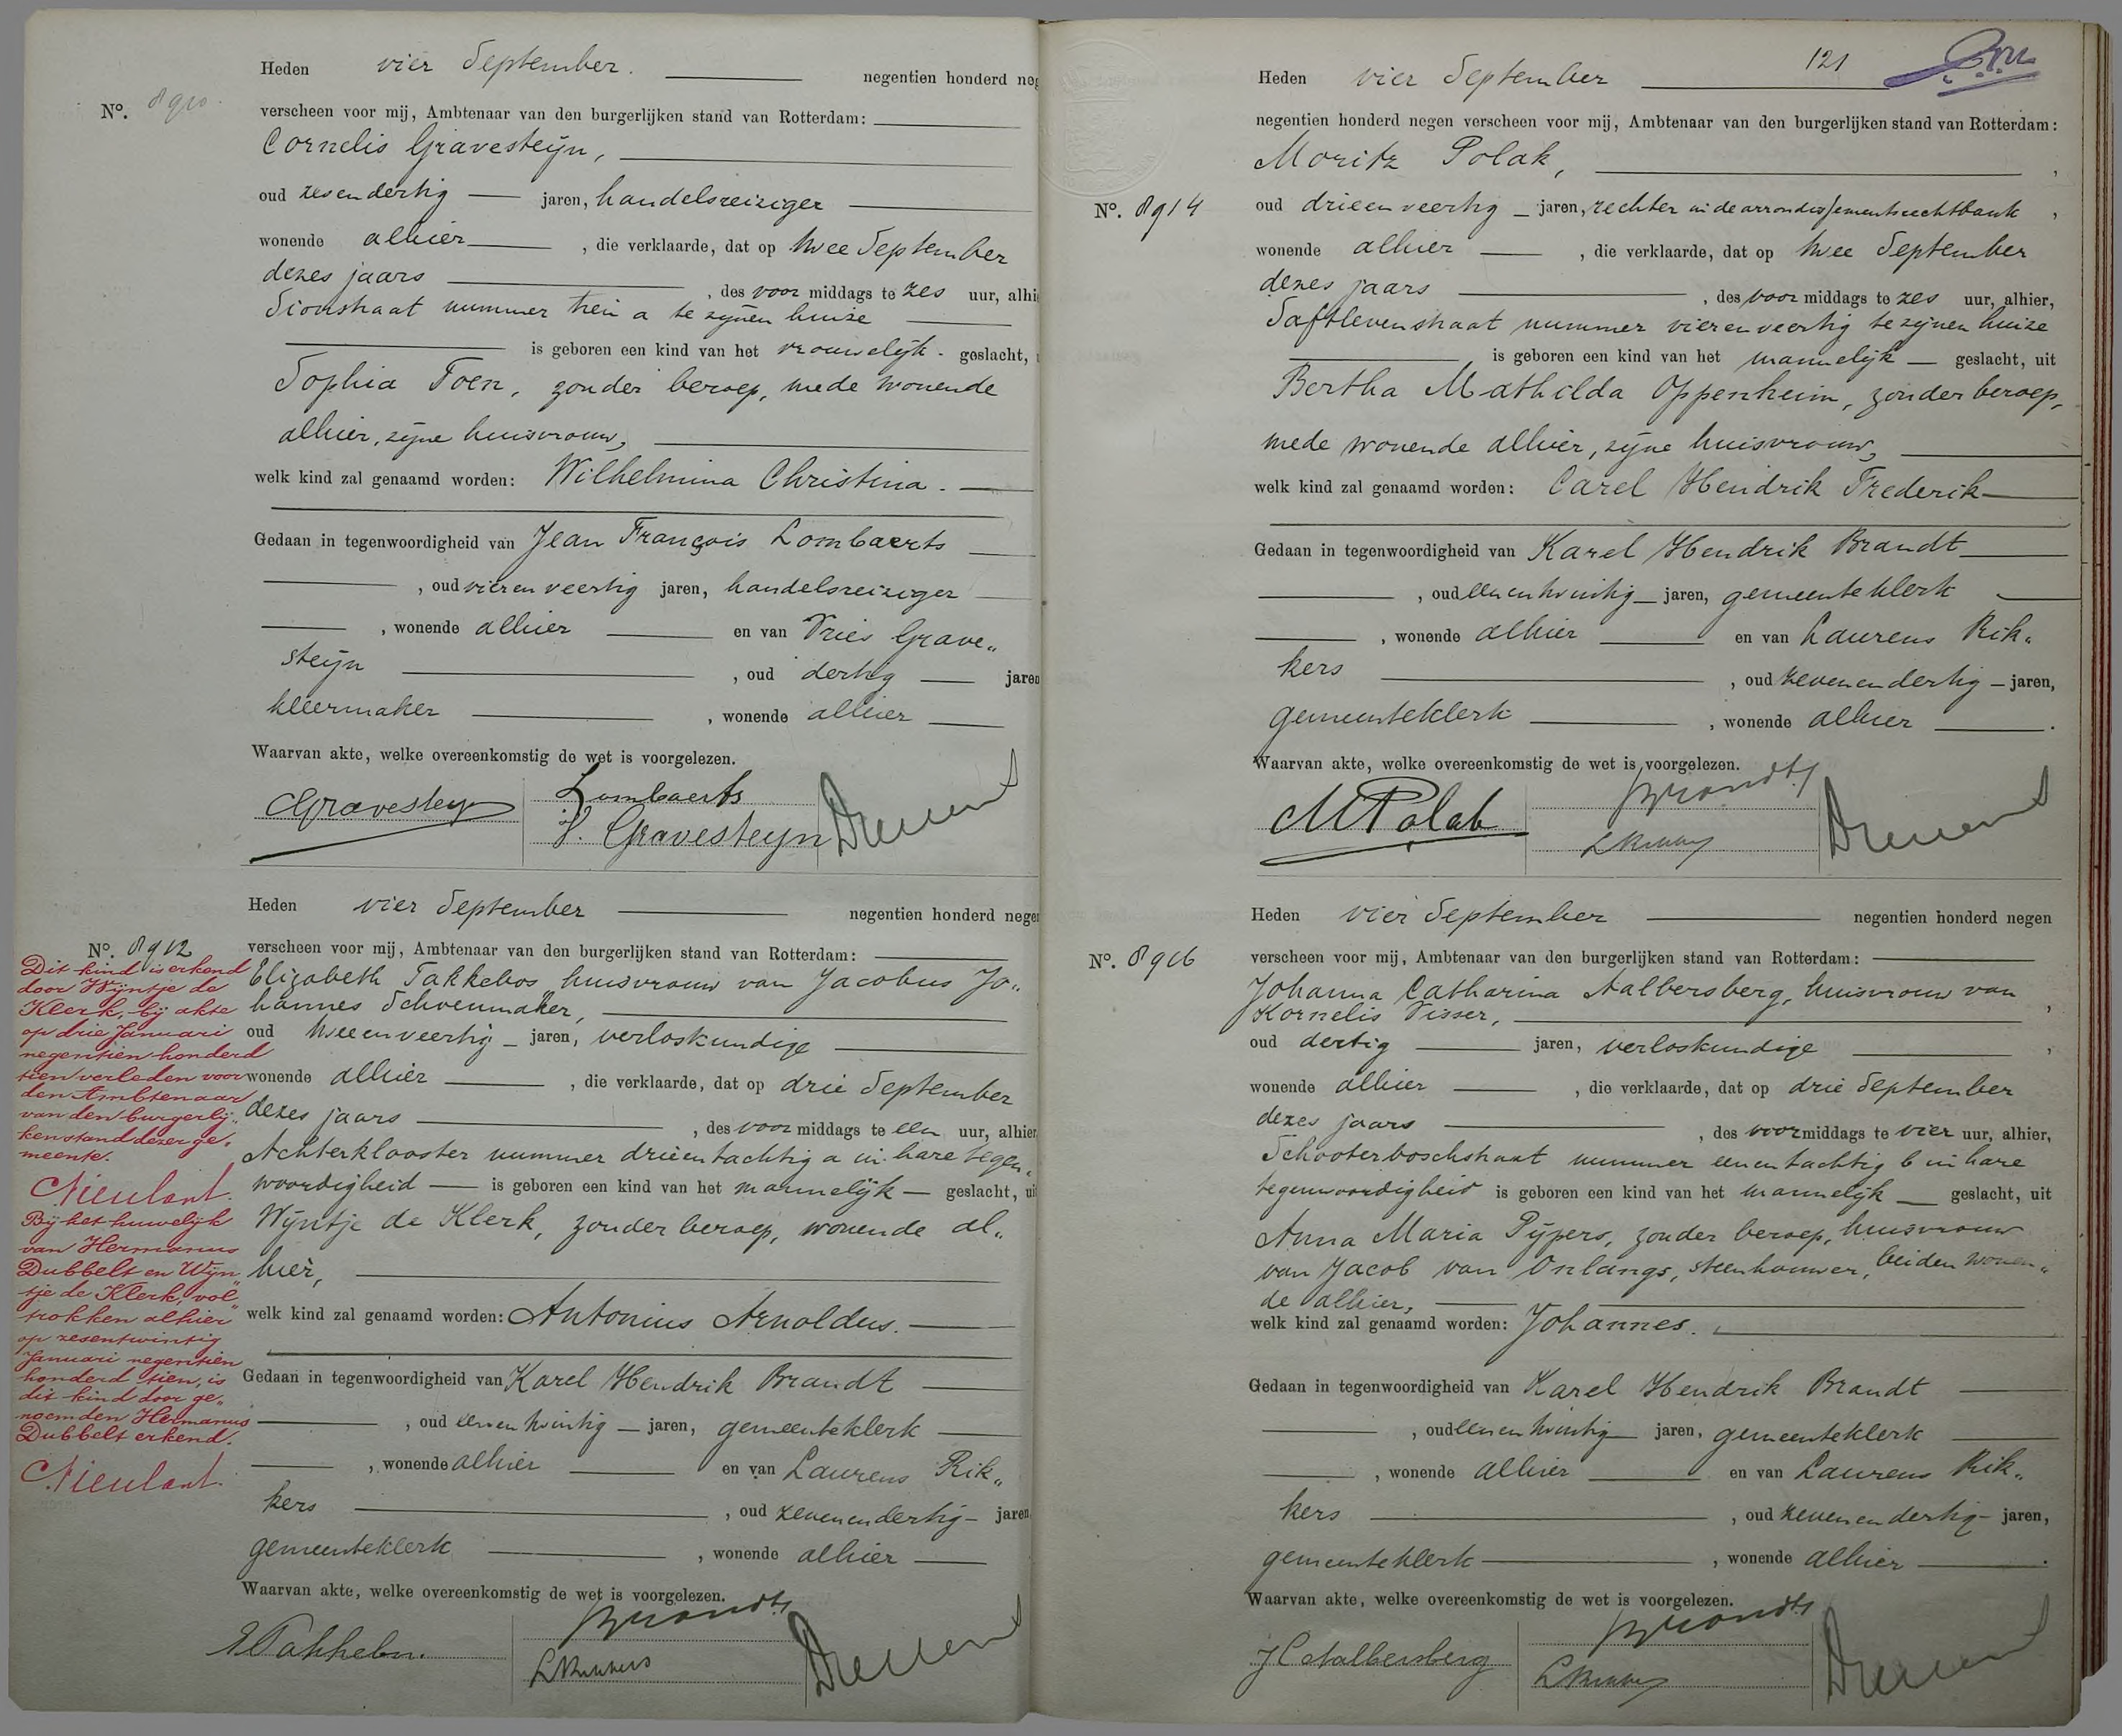 Heden vier September. negentien honderd neg
No. 8910.
verscheen voor mij, Ambtenaar van den burgerlijken stand van Rotterdam:
Cornelis Gravesteijn,
oud zesendertig jaren, handelsreiziger
wonende alhier , die verklaarde, dat op twee September
dezes jaars , des voor middags te zes uur, alhi
Sionstraat nummer tien a te zijnen huize
is geboren een kind van het vrouwelijk. geslacht,
Sophia Toen, zonder beroep, mede wonende
alhier, zijne huisvrouw,
welk kind zal genaamd worden: Wilhelmina Christina.
Gedaan in tegenwoordigheid van Jean François Lombaerts
, oud vierenveertig jaren, handelsreiziger
, wonende alhier en van Dries Grave„
steijn , oud dertig jaren
kleermaker , wonende alhier
Waarvan akte, welke overeenkomstig de wet is voorgelezen.
CGravesteyn
Lombaerts
Gravesteyn
Heden vier September negentien honderd nege
No. 8912
verscheen voor mij, Ambtenaar van den burgerlijken stand van Rotterdam:
Elizabeth Takkebos huisvrouw van Jacobus Jo„
hannes Schoenmaker,
oud tweeenveertig jaren, verloskundige
wonende alhier , die verklaarde, dat op drie September
dezes jaars , des voor middags te een uur, alhier
Achterklooster nummer drieentachtig a in hare tegen„
woordigheid is geboren een kind van het mannelijk geslacht, ui
Wijntje de Klerk, zonder beroep, wonende al„
hier,
welk kind zal genaamd worden: Antonius Arnoldus.
Gedaan in tegenwoordigheid van Karel Hendrik Brandt
, oud eenentwintig jaren, gemeenteklerk
, wonende alhier en van Laurens Rik„
kers , oud zevenendertig jaren
gemeenteklerk , wonende alhier
Waarvan akte, welke overeenkomstig de wet is voorgelezen.
Brandt
LRikkers
Dit kind is erkend
door Wijntje de
Klerk, bij akte
op drie Januari
negentien honderd
tien verleden voor
den Ambtenaar
van den burgerlij„
ken stand dezer ge„
meente.
Nieulant.
Bij het huwelijk
van Hermanus
Dubbelt en Wijn„
tje de Klerk, vol„
trokken alhier
op zesentwintig
Januari negentien
honderd tien, is
dit kind door ge„
noemden Hermanus
Dubbelt erkend.
Nieulant.
121
Heden vier September
negentien honderd negen verscheen voor mij, Ambtenaar van den burgerlijken stand van Rotterdam:
Moritz Polak,
No. 8914
oud drieenveertig jaren, rechter in de arrondissementsrechtbank ,
wonende alhier , die verklaarde, dat op twee September
dezes jaars , des voor middags te zes uur, alhier,
Saftlevenstraat nummer vierenveertig te zijnen huize
is geboren een kind van het mannelijk geslacht, uit
Bertha Mathilda Oppenheim, zonder beroep,
mede wonende alhier, zijne huisvrouw,
welk kind zal genaamd worden: Carel Hendrik Frederik
Gedaan in tegenwoordigheid van Karel Hendrik Brandt
, oud eenentwintig jaren, gemeenteklerk
, wonende alhier en van Laurens Rik„
kers , oud zevenendertig jaren,
gemeenteklerk , wonende alhier .
Waarvan akte, welke overeenkomstig de wet is voorgelezen.
MPolak
Brandt
Heden vier September negentien honderd negen
No. 8916
verscheen voor mij, Ambtenaar van den burgerlijken stand van Rotterdam:
Johanna Catharina Aalbersberg, huisvrouw van
Kornelis Visser, ,
oud dertig jaren, verloskundige ,
wonende alhier , die verklaarde, dat op drie September
dezes jaars , des voormiddags te vier uur, alhier,
Schooterboschstraat nummer eenentachtig b in hare
tegenwoordigheid is geboren een kind van het mannelijk geslacht, uit
Anna Maria Pijpers, zonder beroep, huisvrouw
van Jacob van Onlangs, steenhouwer, beiden wonen„
de alhier,
welk kind zal genaamd worden: Johannes.
Gedaan in tegenwoordigheid van Karel Hendrik Brandt
, oud eenentwintig jaren, gemeenteklerk
, wonende alhier en van Laurens Rik„
kers , oud zevenendertig jaren,
gemeenteklerk , wonende alhier .
Waarvan akte, welke overeenkomstig de wet is voorgelezen.
JCAalbersberg
Brandt